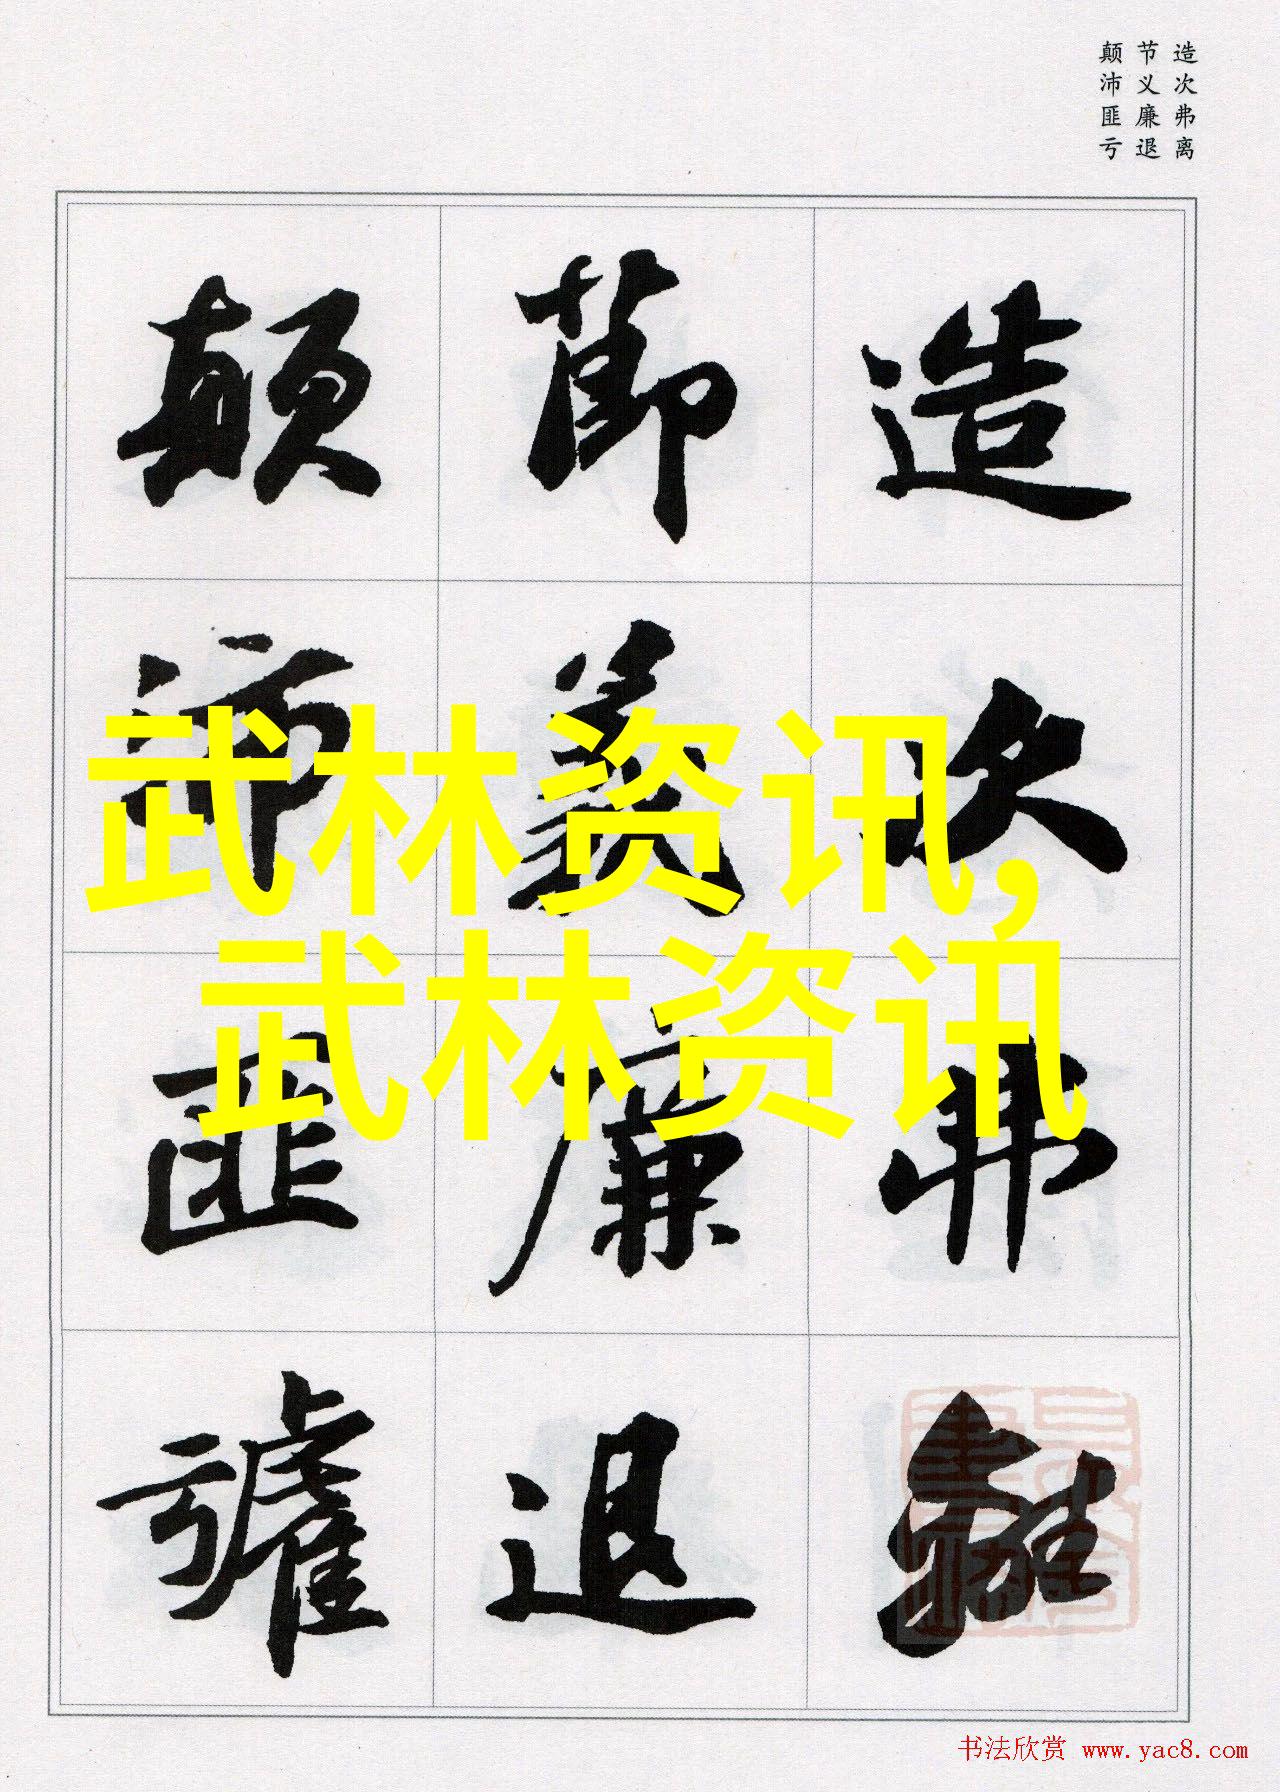 造次弗离
节义廉退
颠沛匪亏
造次弗離
節義廉退
顛沛匪虧
武林资讯,
武林资讯
书法欣赏 www.yac8.com